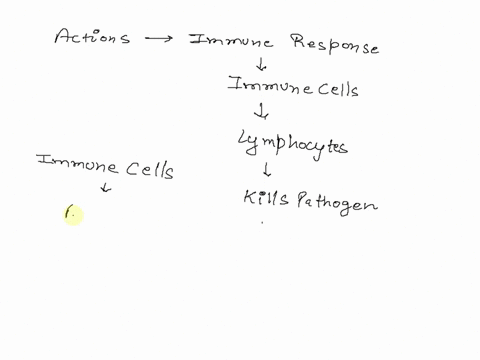 Actions → Immune Response
↓
Immune Cells
↓
Lymphocytes
↓
Kills Pathogen
Immune Cells
↓